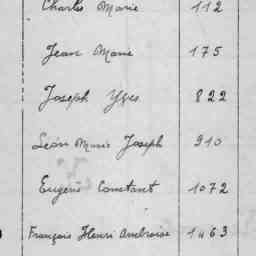 Charles Marie 112
Jean Marie 175
Joseph Yves 822
Léon Marie Joseph 910
Eugène Constant 1072
François Henri Ambroise 1463